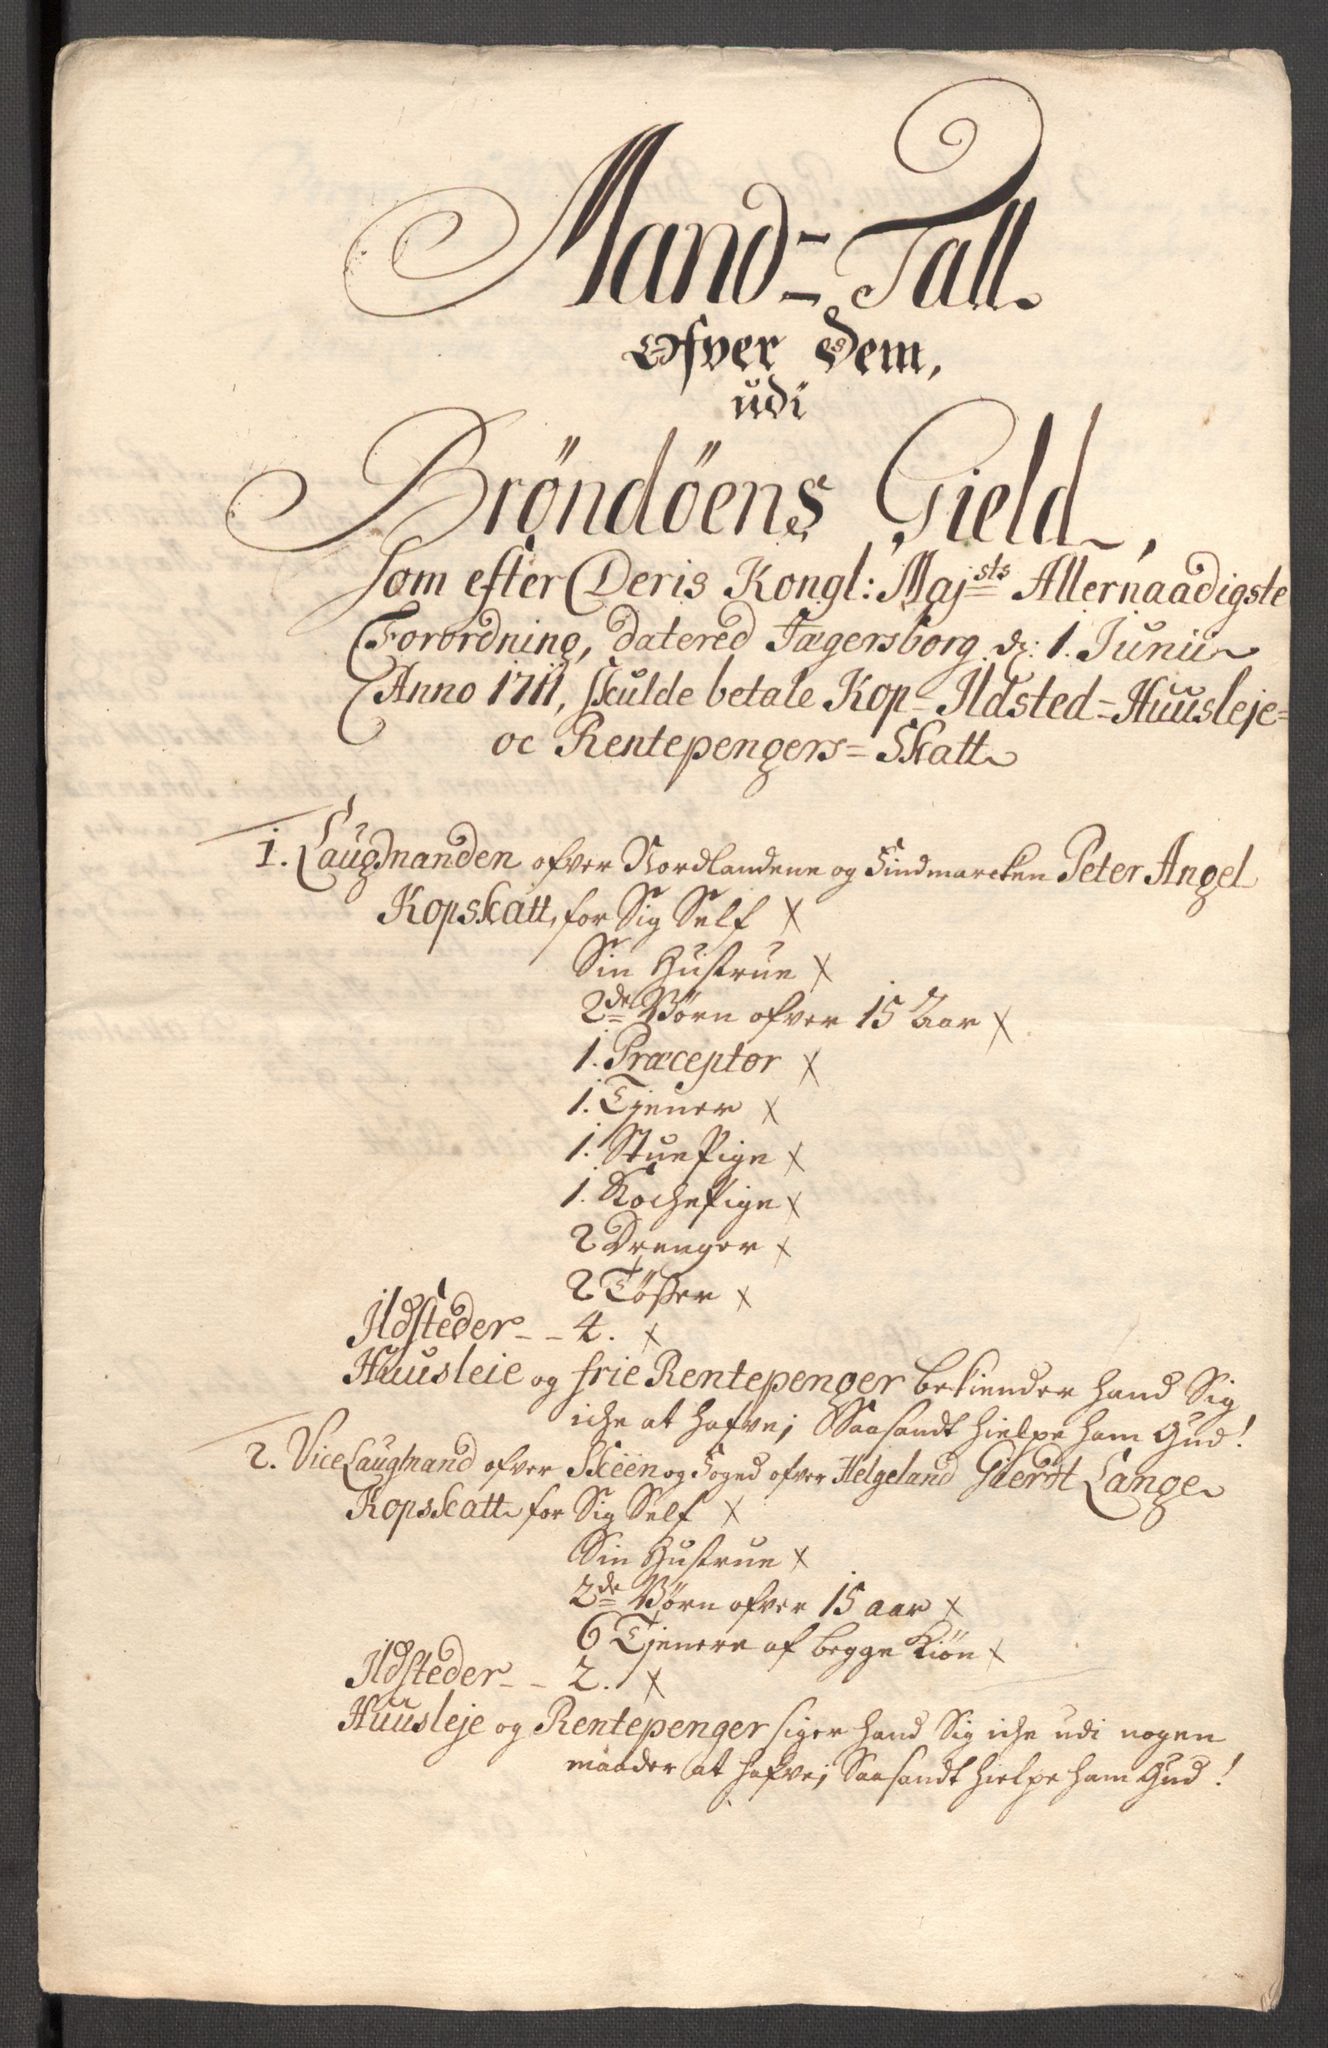 Mand-Tall
Ofver Dem,
udi
Bröndöens Gield,
som efter Deris Kongl: Majsts Allernaadigste
Forordning, datered Jægersborg d: 1. Junii
Anno 1711, skulde betale Kop- Ildsted-Huusleje-
oc Rentepengers-Skatt
1. Laugmanden ofver Nordlandene og Findmarcken Peter Angel
Kopskatt, for Sig Self x
Sin Hustrue x
2de Børn ofver 15 Aar x
1. Præceptor x
1. Tjener x
1. StuePige x
1. KochePige x
2 Drenger x
2 Tøßer x
Ildsteder - - 4. x
Huusleie og frie Rentepenger bekiender hand Sig
iche at hafve; Saasandt hielpe ham Gud!
2. ViceLaugmand ofver Skeen og Foged ofver Helgeland Gierdt Lange
Kopskatt for Sig Self x
Sin Hustrue x
2de Børn ofver 15 aar x
6 Tjenere af begge Kiøn x
Ildsteder - - 2. x
Huusleje og Rentepenger siger hand Sig iche udi nogen
maader at hafve; Saasandt hielpe ham Gud!